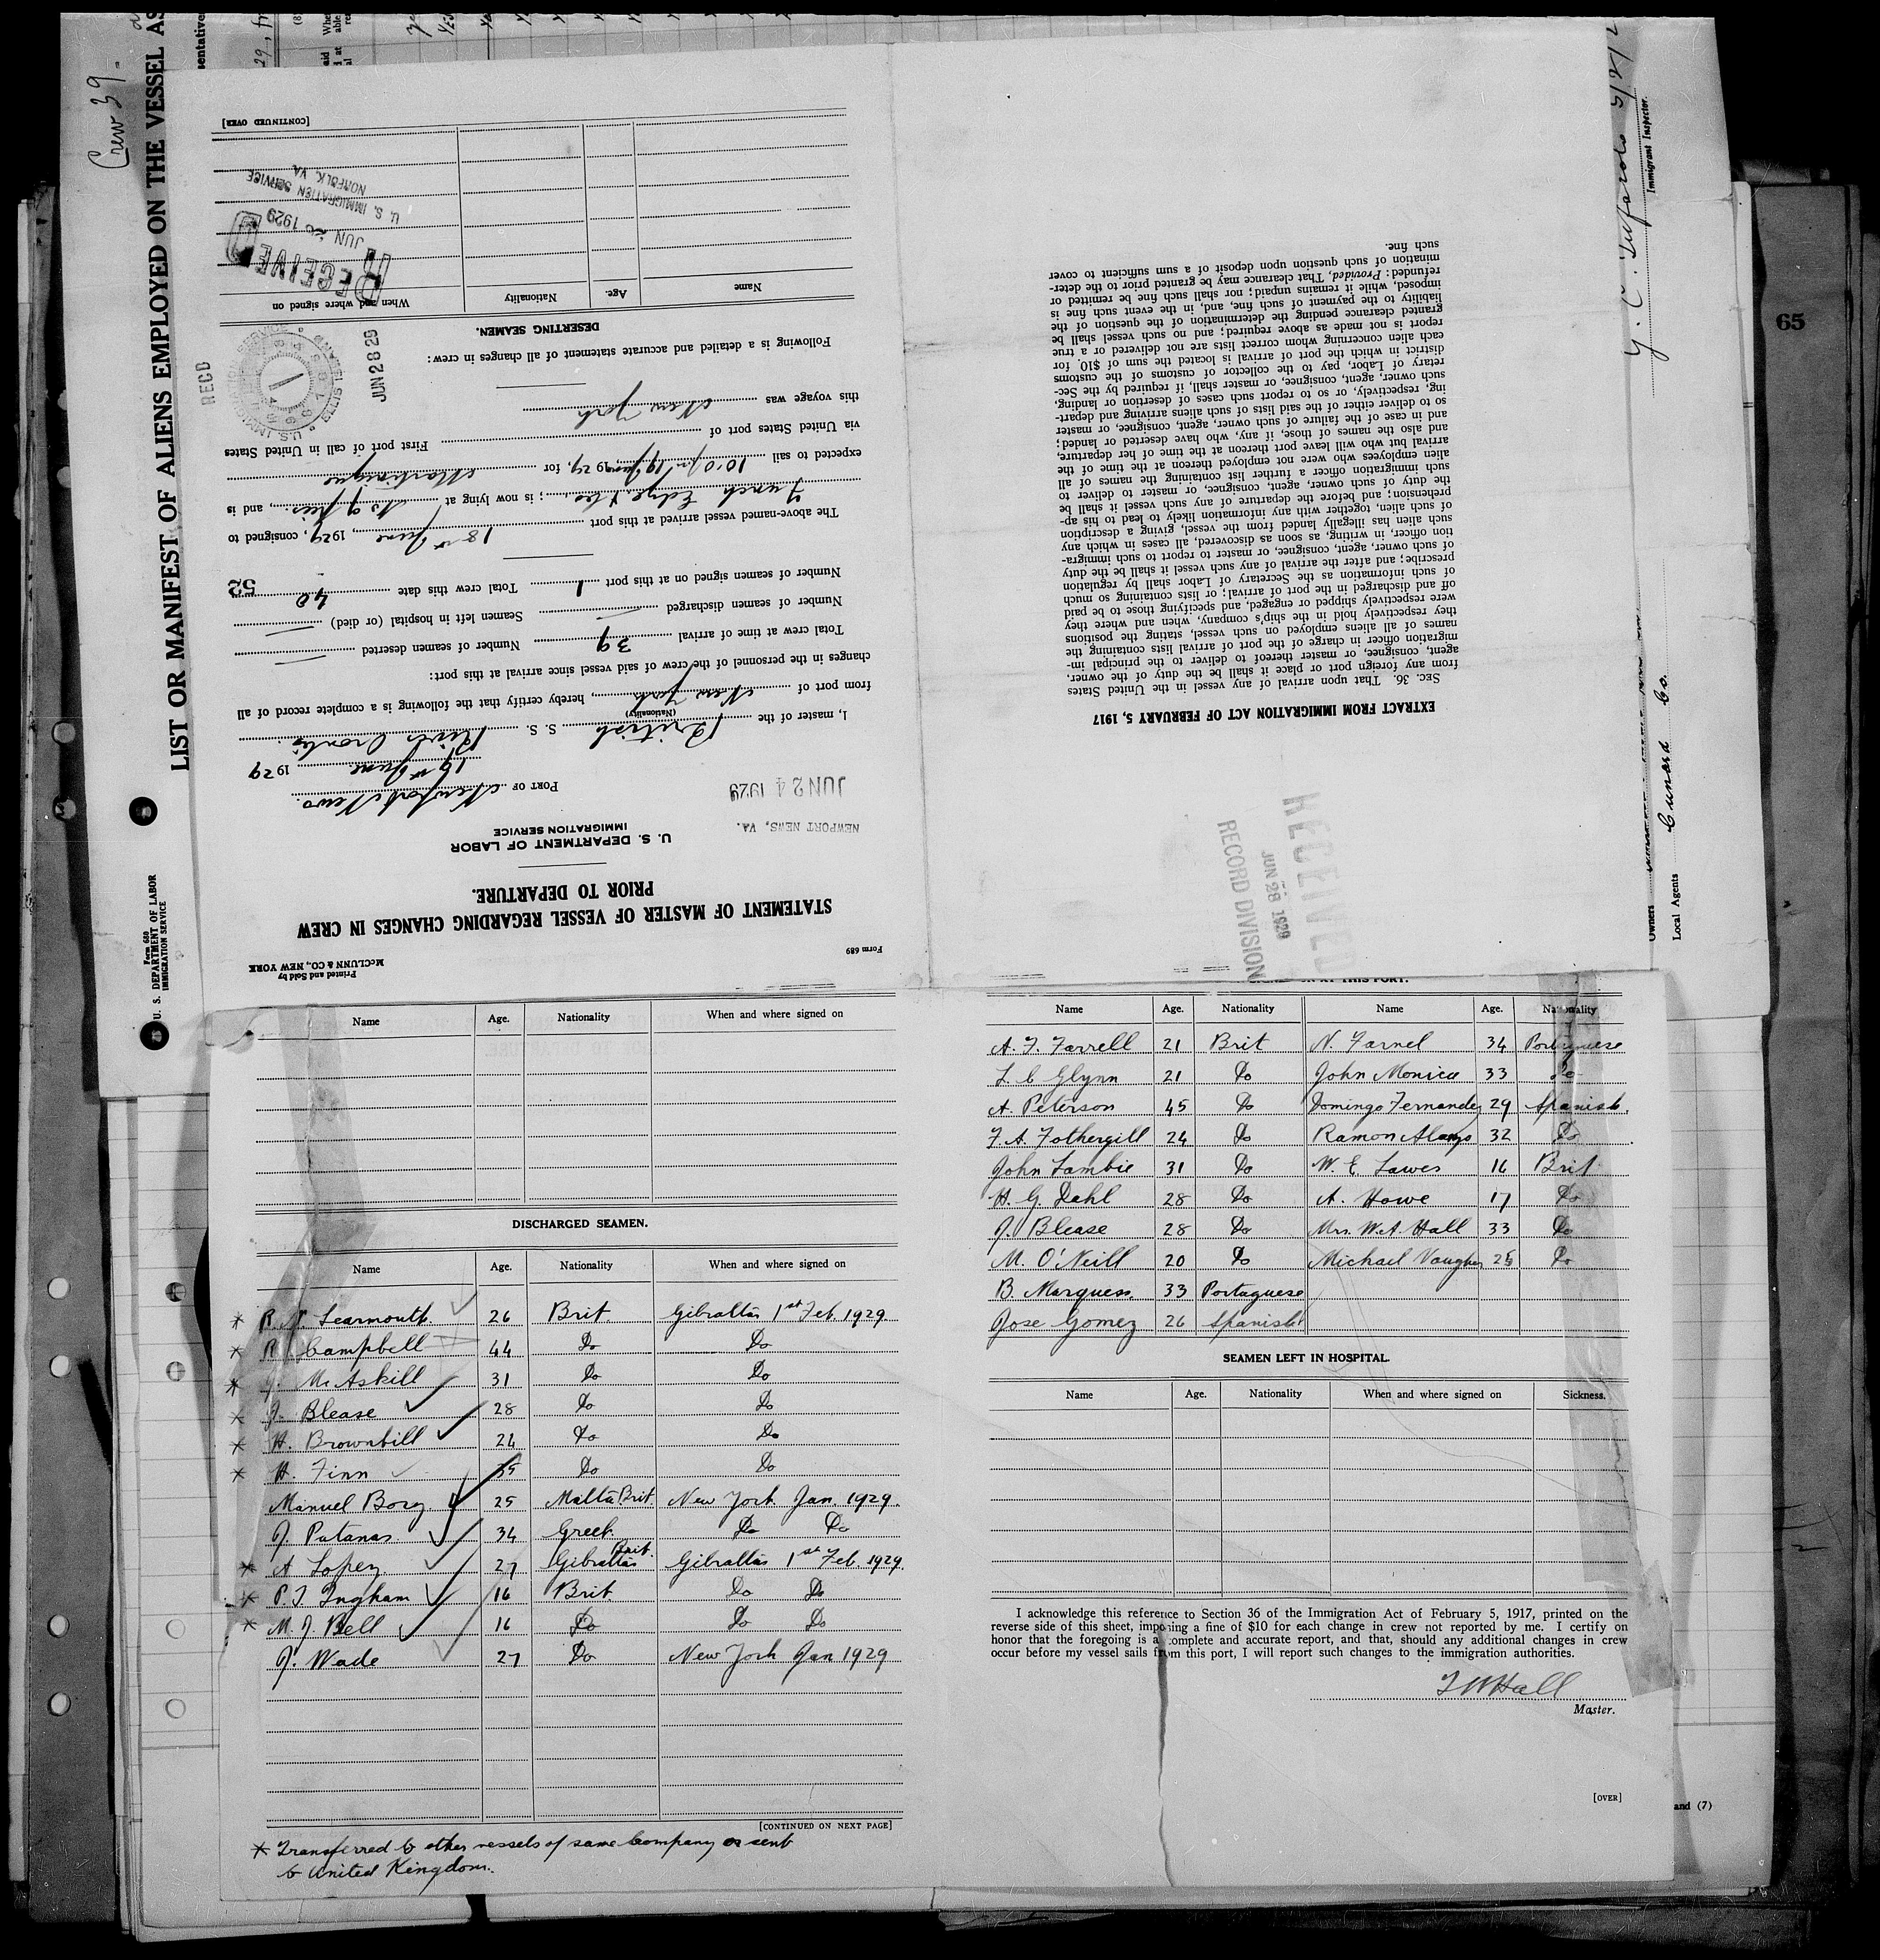 Crew 39.
LIST OR MANIFEST OF ALIENS EMPLOYED ON THE VESSEL AS
Form 680
U. S. DEPARTMENT OF LABOR
IMMIGRATION SERVICE
65
Immigrant Inspector.
Owners
Local Agents Cunard Co.
and (7)
Form 689
Printed and Sold by
McCLUNN & CO., NEW YORK
STATEMENT OF MASTER OF VESSEL REGARDING CHANGES IN CREW
PRIOR TO DEPARTURE.
U. S. DEPARTMENT OF LABOR
IMMIGRATION SERVICE
NEWPORT NEWS, VA.
JUN 24 1929
PORT OF Newport News.
19th June 1929
I, master of the British S. S. River Orontes
(Nationality)
from port of New York, hereby certify that the following is a complete record of all
changes in the personnel of the crew of said vessel since arrival at this port:
Total crew at time of arrival 39 Number of seamen deserted —
Number of seamen discharged — Seamen left in hospital (or died) —
Number of seamen signed on at this port 1 Total crew this date 40
52
The above-named vessel arrived at this port 18th June, 1929, consigned to
Funch Edye & Co.; is now lying at No 9 Pier, and is
expected to sail 10.0 pm 19 June, 1929, for Martinique
via United States port of First port of call in United States
this voyage was New York
Following is a detailed and accurate statement of all changes in crew:
DESERTING SEAMEN.
Name Age. Nationality When and where signed on
RECD
JUN 28 29
U.S. IMMIGRATION SERVICE ELLIS ISLAND
RECEIVED
JUN 26 1929
U. S. IMMIGRATION SERVICE
NORFOLK, VA.
[CONTINUED OVER]
RECEIVED
JUN 28 1929
RECORD DIVISION
EXTRACT FROM IMMIGRATION ACT OF FEBRUARY 5, 1917
SEC. 36. That upon arrival of any vessel in the United States
from any foreign port or place it shall be the duty of the owner,
agent, consignee, or master thereof to deliver to the principal im-
migration officer in charge of the port of arrival lists containing the
names of all aliens employed on such vessel, stating the positions
they respectively hold in the ship's company, when and where they
were respectively shipped or engaged, and specifying those to be paid
off and discharged in the port of arrival; or lists containing so much
of such information as the Secretary of Labor shall by regulation
prescribe; and after the arrival of any such vessel it shall be the duty
of such owner, agent, consignee, or master to report to such immigra-
tion officer, in writing, as soon as discovered, all cases in which any
such alien has illegally landed from the vessel, giving a description
of such alien, together with any information likely to lead to his ap-
prehension; and before the departure of any such vessel it shall be
the duty of such owner, agent, consignee, or master to deliver to
such immigration officer a further list containing the names of all
alien employees who were not employed thereon at the time of the
arrival but who will leave port thereon at the time of her departure,
and also the names of those, if any, who have deserted or landed;
and in case of the failure of such owner, agent, consignee, or master
so to deliver either of the said lists of such aliens arriving and depart-
ing, respectively, or so to report such cases of desertion or landing,
such owner, agent, consignee, or master shall, if required by the Sec-
retary of Labor, pay to the collector of customs of the customs
district in which the port of arrival is located the sum of $10. for
each alien concerning whom correct lists are not delivered or a true
report is not made as above required; and no such vessel shall be
granted clearance pending the determination of the question of the
liability to the payment of such fine, and, in the event such fine is
imposed, while it remains unpaid; nor shall such fine be remitted or
refunded: Provided, That clearance may be granted prior to the deter-
mination of such question upon deposit of a sum sufficient to cover
such fine.
Name Age. Nationality When and where signed on
DISCHARGED SEAMEN.
Name Age. Nationality When and where signed on
* Learmouth 26 Brit. Gibraltar 1st Feb. 1929.
* R Campbell 44 Do Do
* McAskill 31 Do Do
* J. Blease 28 Do Do
* H. Brownbill 24 Do Do
* H. Finn 35 Do Do
Manuel Borg 25 Malta Brit. New York Jan. 1929.
J. Patanas 34 Greek Do Do
* A Lopez 27 Gibraltar Brit. Gibraltar 1st Feb. 1929.
* P. J. Ingham 16 Brit Do Do
* M. J. Bell 16 Do Do Do
J. Wade 27 Do New York Jan 1929
[CONTINUED ON NEXT PAGE]
* Transferred to other vessels of same Company or sent
to United Kingdom.
THIS PORT.
Name Age. Nationality Name Age. Nationality
A. F. Farrell 21 Brit N. Farnel 34 Portuguese
L. C Glynn 21 Do John Monica 33 Do
A. Peterson 45 Do Domingo Fernandez 29 Spanish.
F. A. Fothergill 24 Do Ramon Alonzo 32 Do
John Lambie 31 Do W. E. Lawes 16 Brit
H. G. Dahl 28 Do A. Howe 17 Do
J. Blease 28 Do Mrs. W. A. Hall 33 Do
M. O'Neill 20 Do Michael Vaughan 25 Do
B. Marquess. 33 Portuguese
Jose Gomez 26 Spanish
SEAMEN LEFT IN HOSPITAL.
Name Age. Nationality When and where signed on Sickness.
I acknowledge this reference to Section 36 of the Immigration Act of February 5, 1917, printed on the
reverse side of this sheet, imposing a fine of $10 for each change in crew not reported by me. I certify on
honor that the foregoing is a complete and accurate report, and that, should any additional changes in crew
occur before my vessel sails from this port, I will report such changes to the immigration authorities.
Hall
Master.
[OVER]